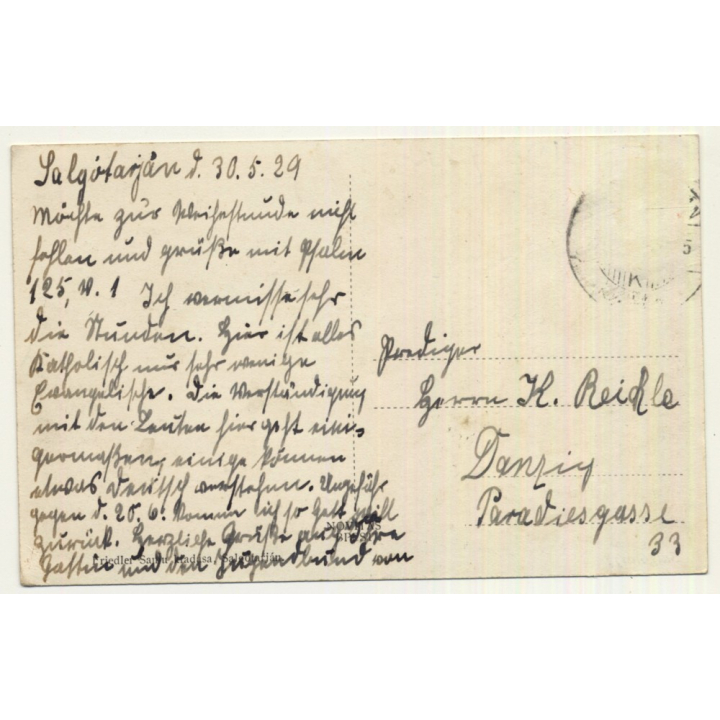 Salgótarján d. 30.5.29
Möchte zur Weihestunde nicht
fehlen und grüße mit Psalm
125, V. 1 Ich vermisse sehr
die Stunden. Hier ist alles
Katholisch nur sehr wenige
Evangelische. Die Verständigung
mit den Leuten hier geht eini-
germaßen, einige können
etwas Deutsch verstehen. Ungefähr
gegen d. 20.6. komme ich so Gott will
zurück. Herzliche Grüße an Ihre
Gattin und den Jugendbund von
Prediger
Herrn K. Reichle
Danzig
Paradiesgasse
33
NOVITAS
Friedler Salgótarján